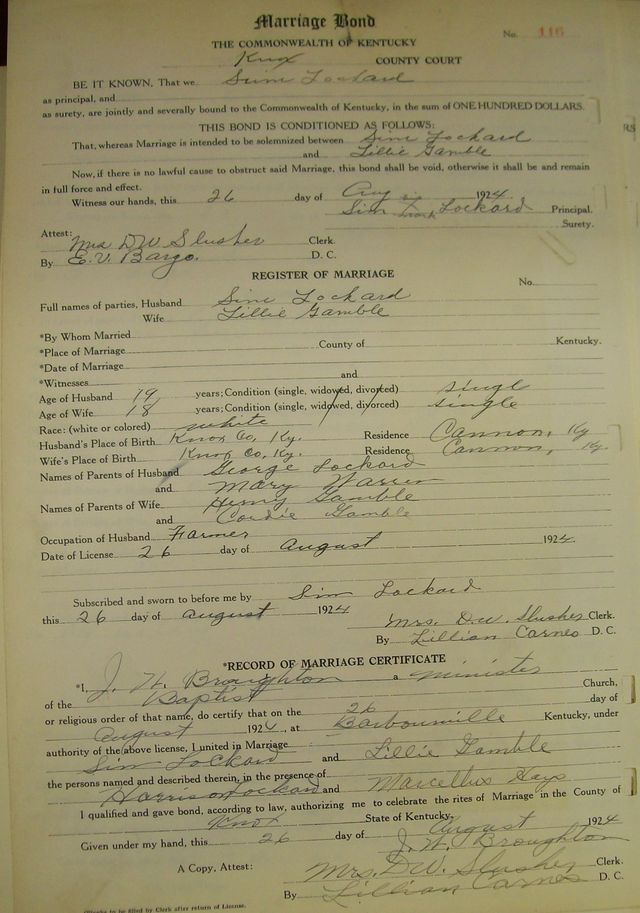 Marriage Bond
No. 116
THE COMMONWEALTH OF KENTUCKY
Knox COUNTY COURT
BE IT KNOWN, That we Sim Lockard
as principal, and
as surety, are jointly and severally bound to the Commonwealth of Kentucky, in the sum of ONE HUNDRED DOLLARS.
THIS BOND IS CONDITIONED AS FOLLOWS:
That, whereas Marriage is intended to be solemnized between Sim Lockard
and Lillie Gamble
Now, if there is no lawful cause to obstruct said Marriage, this bond shall be void, otherwise it shall be and remain
in full force and effect.
Witness our hands, this 26 day of Aug 1924
Sim Lockard Principal.
Surety.
Attest:
Mrs D W Slusher Clerk.
By E. V. Bargo. D. C.
REGISTER OF MARRIAGE
No.
Full names of parties, Husband Sim Lockard
Wife Lillie Gamble
*By Whom Married
*Place of Marriage County of Kentucky.
*Date of Marriage
*Witnesses and
Age of Husband 19 years; Condition (single, widowed, divorced) singl
Age of Wife 18 years; Condition (single, widowed, divorced) single
Race: (white or colored) white
Husband's Place of Birth Knox Co, Ky. Residence Cannon, Ky
Wife's Place of Birth Knox Co, Ky. Residence Cannon, Ky.
Names of Parents of Husband George Lockard
and Mary Warren
Names of Parents of Wife Henry Gamble
and Cordie Gamble
Occupation of Husband Farmer
Date of License 26 day of august 1924.
Subscribed and sworn to before me by Sim Lockard
this 26 day of august 1924
Mrs. D.W. Slusher Clerk.
By Lillian Carnes D. C.
*RECORD OF MARRIAGE CERTIFICATE
*I, J. W. Broughton a minister
of the Baptist Church,
or religious order of that name, do certify that on the 26 day of
august 1924, at Barbourville Kentucky, under
authority of the above license, I united in Marriage
Sim Lockard and Lillie Gamble
the persons named and described therein, in the presence of
Harrison Lockard and Marcellus Hays
I qualified and gave bond, according to law, authorizing me to celebrate the rites of Marriage in the County of
Knox State of Kentucky.
Given under my hand, this 26 day of August 1924
J. W. Broughton
A Copy, Attest: Mrs. D W. Slusher Clerk.
By Lillian Carnes D. C.
to be filed by Clerk after return of License.